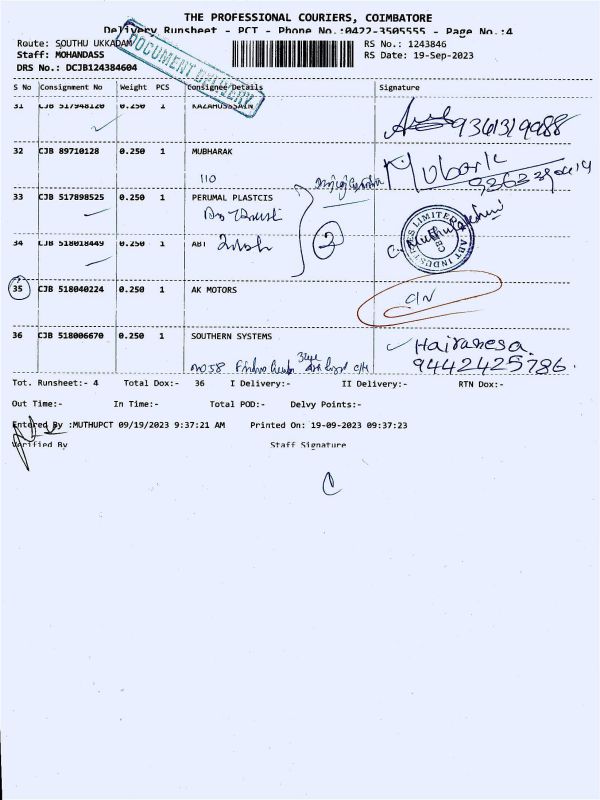 THE PROFESSIONAL COURIERS, COIMBATORE
Delivery Runsheet - PCT - Phone No.:0422-3505555 - Page No.:4
Route: SOUTHU UKKADAM
RS No.: 1243846
Staff: MOHANDASS
RS Date: 19-Sep-2023
DRS No.: DCJB124384604
DOCUMENT DELIVERY
S No Consignment No Weight PCS Consignee Details Signature
31 CJB 517948120 0.250 1 KAZAHUSSAIN
9361319988
32 CJB 89710128 0.250 1 MUBHARAK
110
Mubarak
33 CJB 517898525 0.250 1 PERUMAL PLASTCIS
34 CJB 518018449 0.250 1 ABT
2
C. Muthulakshmi
ABT INDUSTRIES LIMITED
35 CJB 518040224 0.250 1 AK MOTORS
C/N
36 CJB 518006670 0.250 1 SOUTHERN SYSTEMS
NO 58
Hairanesa.
9442425786.
Tot. Runsheet:- 4 Total Dox:- 36 I Delivery:- II Delivery:- RTN Dox:-
Out Time:- In Time:- Total POD:- Delvy Points:-
Entered By :MUTHUPCT 09/19/2023 9:37:21 AM Printed On: 19-09-2023 09:37:23
Verified By Staff Signature